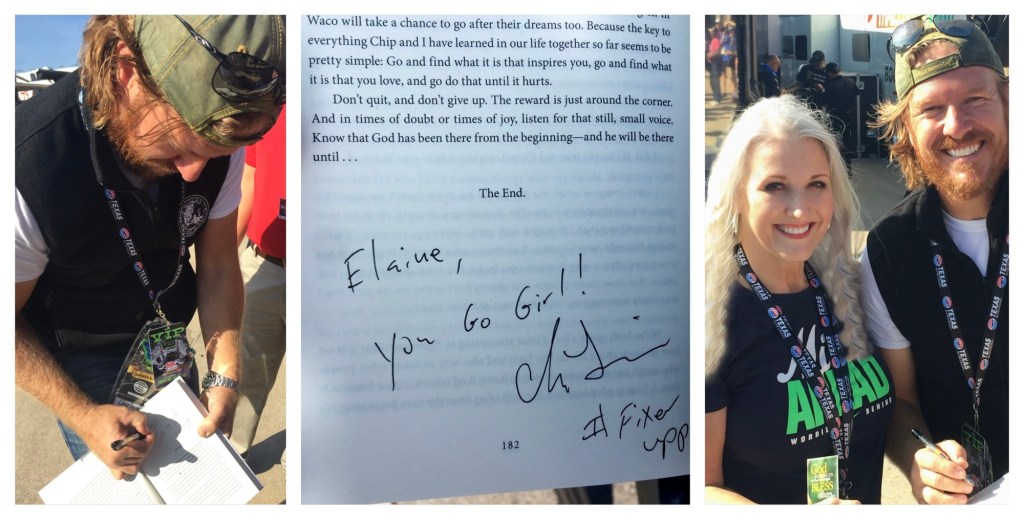 TEXAS
TEXAS
TEXAS
VIP
Waco will take a chance to go after their dreams too. Because the key to
everything Chip and I have learned in our life together so far seems to be
pretty simple: Go and find what it is that inspires you, go and find what
it is that you love, and go do that until it hurts.
Don't quit, and don't give up. The reward is just around the corner.
And in times of doubt or times of joy, listen for that still, small voice.
Know that God has been there from the beginning—and he will be there
until . . .
The End.
Elaine,
You Go Girl!
# Fixer
upp
182
TEXAS
TEXAS
TEXAS
TEXAS
TEXAS
AHEAD
BEHIND
God
BLESS